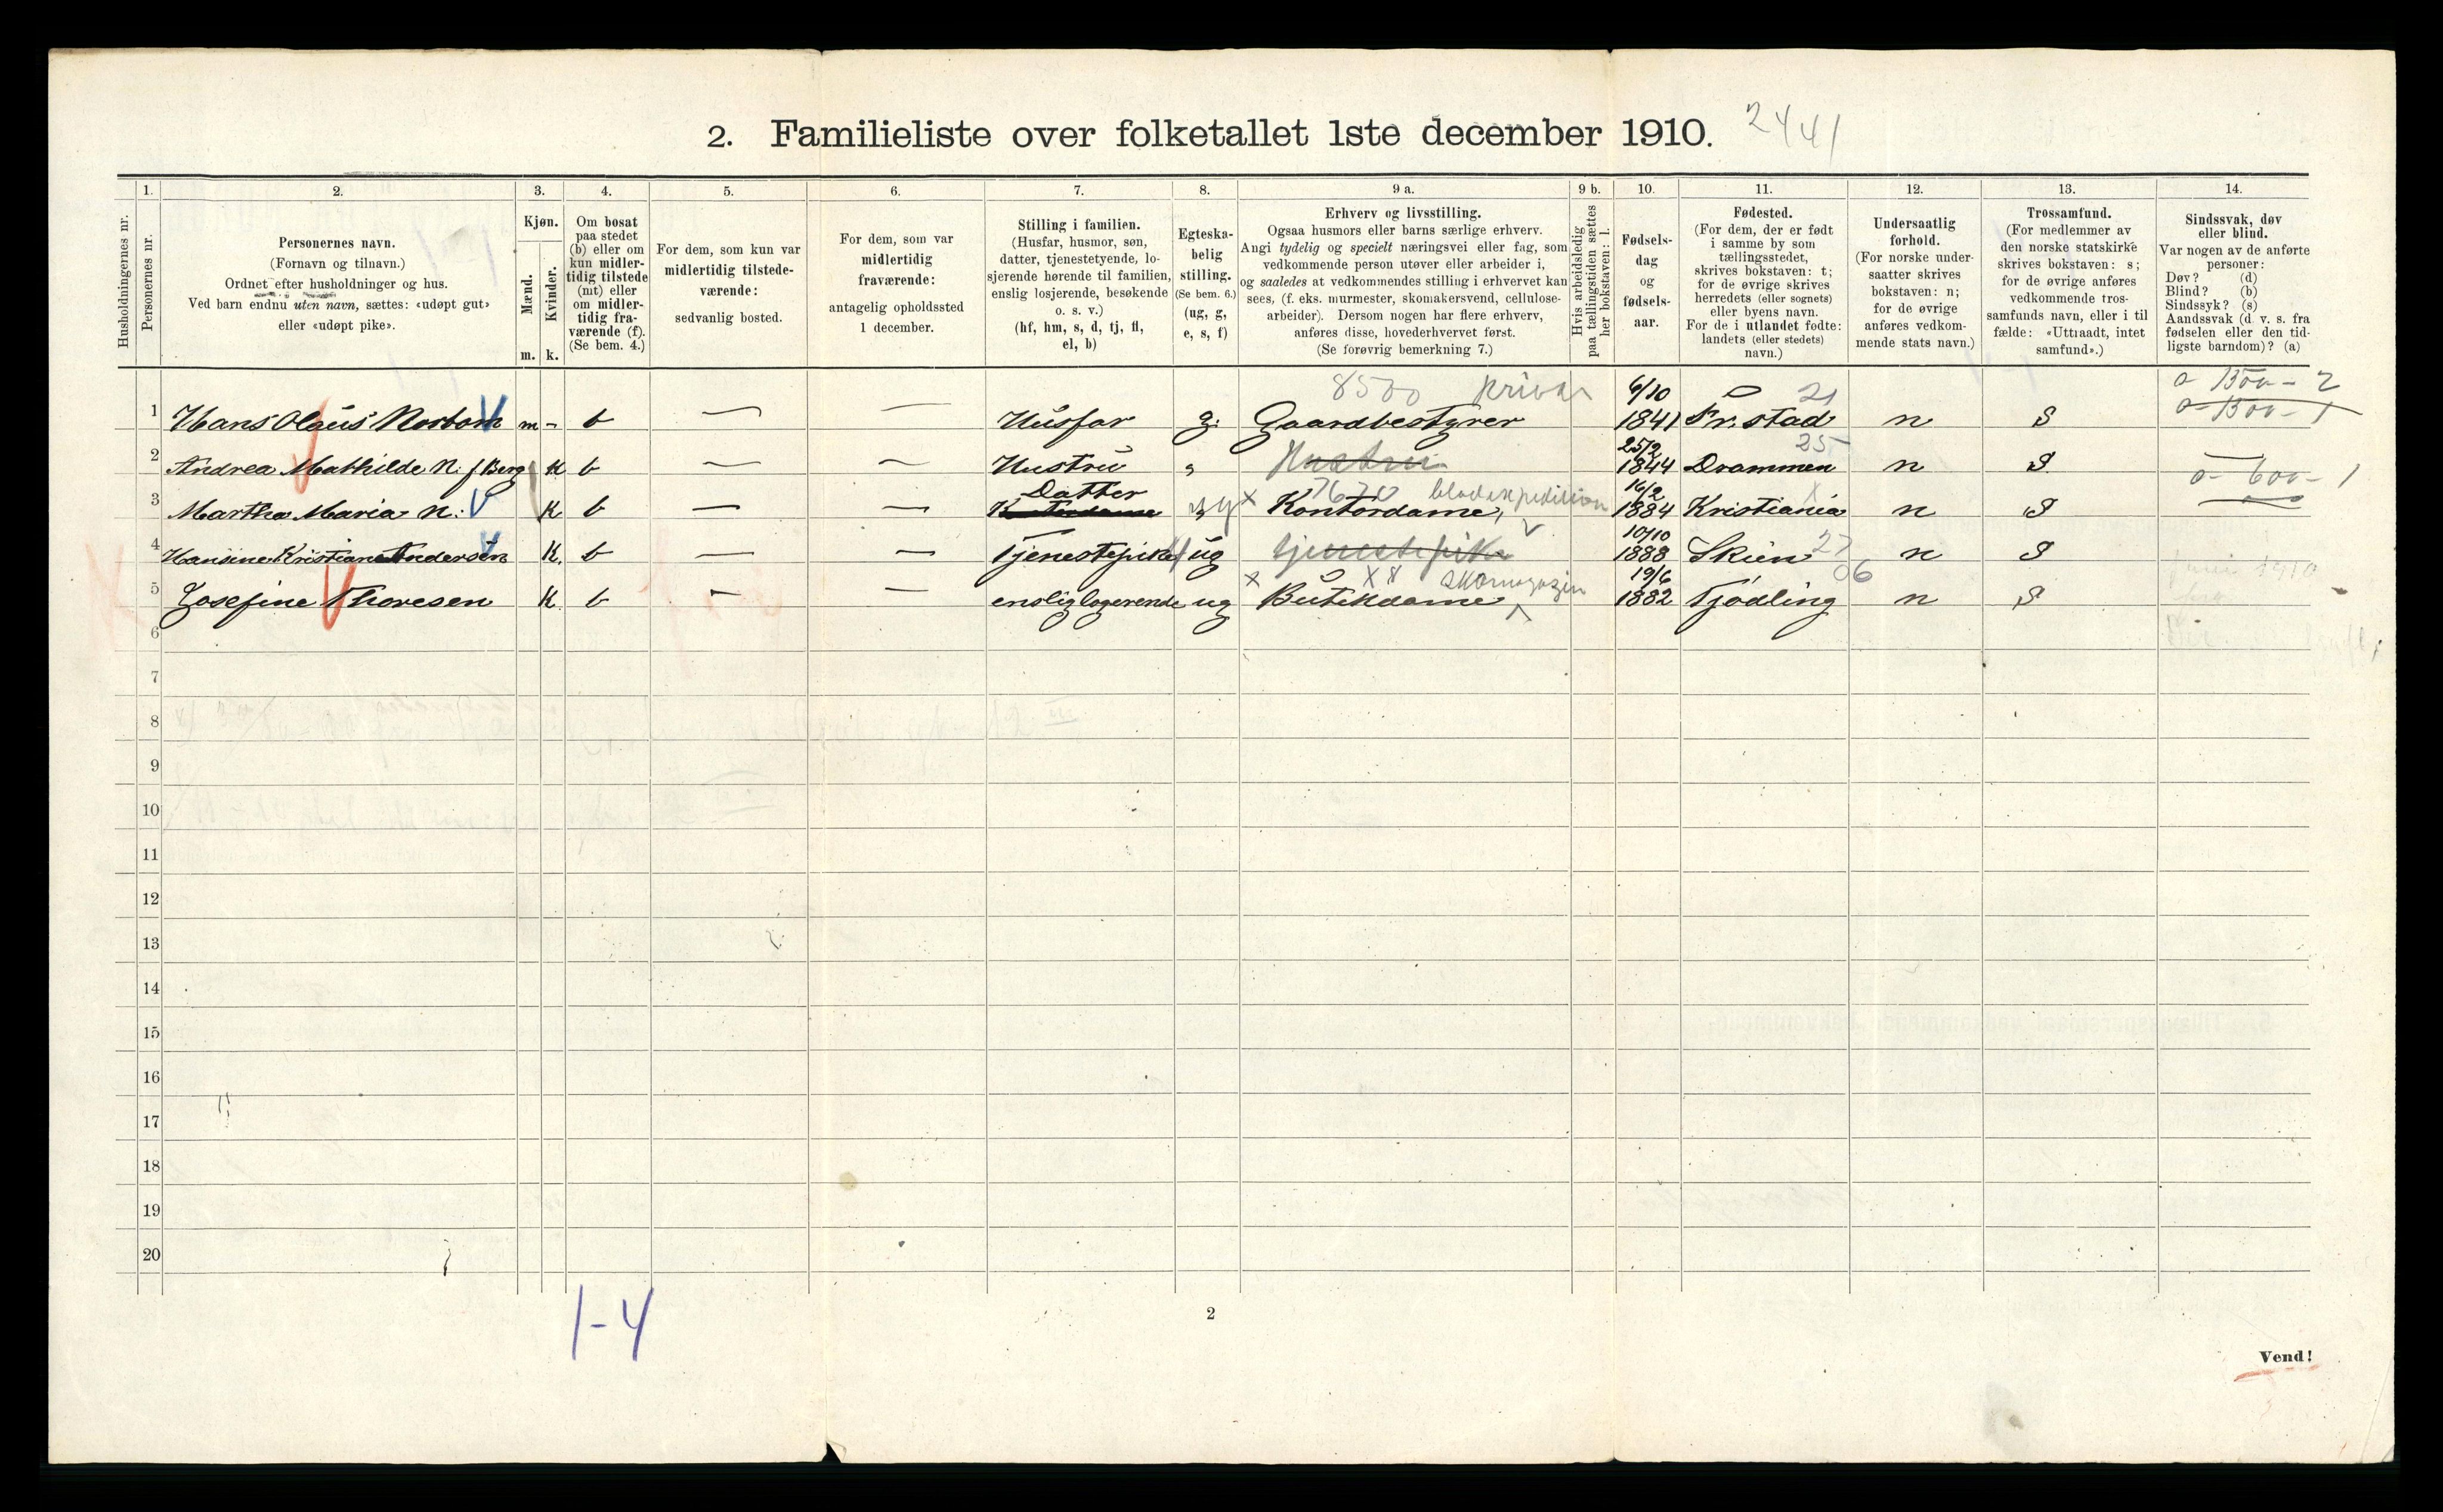 2. Familieliste over folketallet 1ste december 1910. 2441
1. 2. 3. 4. 5. 6. 7. 8. 9 a. 9 b. 10. 11. 12. 13. 14.
Husholdningernes nr.
Personernes nr.
Personernes navn.
(Fornavn og tilnavn.)
Ordnet efter husholdninger og hus.
Ved barn endnu uten navn, sættes: «udøpt gut»
eller «udøpt pike».
Kjøn.
Mænd.
Kvinder.
m. k.
Om bosat
paa stedet
(b) eller om
kun midler-
tidig tilstede
(mt) eller
om midler-
tidig fra-
værende (f).
(Se bem. 4.)
For dem, som kun var
midlertidig tilstede-
værende:
sedvanlig bosted.
For dem, som var
midlertidig
fraværende:
antagelig opholdssted
1 december.
Stilling i familien.
(Husfar, husmor, søn,
datter, tjenestetyende, lo-
sjerende hørende til familien,
enslig losjerende, besøkende
o. s. v.)
(hf, hm, s, d, tj, fl,
el, b)
Egteska-
belig
stilling.
(Se bem. 6.)
(ug, g,
e, s, f)
Erhverv og livsstilling.
Ogsaa husmors eller barns særlige erhverv.
Angi tydelig og specielt næringsvei eller fag, som
vedkommende person utøver eller arbeider i,
og saaledes at vedkommendes stilling i erhvervet kan
sees, (f. eks. murmester, skomakersvend, cellulose-
arbeider). Dersom nogen har flere erhverv,
anføres disse, hovederhvervet først.
(Se forøvrig bemerkning 7.)
Hvis arbeidsledig
paa tællingstiden sættes
her bokstaven: l.
Fødsels-
dag
og
fødsels-
aar.
Fødested.
(For dem, der er født
i samme by som
tællingsstedet,
skrives bokstaven: t;
for de øvrige skrives
herredets (eller sognets)
eller byens navn.
For de i utlandet fødte:
landets (eller stedets)
navn.)
Undersaatlig
forhold.
(For norske under-
saatter skrives
bokstaven: n;
for de øvrige
anføres vedkom-
mende stats navn.)
Trossamfund.
(For medlemmer av
den norske statskirke
skrives bokstaven: s;
for de øvrige anføres
vedkommende tros-
samfunds navn, eller i til
fælde: «Uttraadt, intet
samfund».)
Sindssvak, døv
eller blind.
Var nogen av de anførte
personer:
Døv? (d)
Blind? (b)
Sindssyk? (s)
Aandssvak (d. v. s. fra
fødselen eller den tid-
ligste barndom)? (a)
8500 Privat 6/10 21 o- 1500 - 2
1 Hans Olaus Norbom m - b — — Husfar g. Gaardbestyrer 1841 Fr.stad n S o- 1500 - 1
25/2 25
2 Andrea Mathilde N. f Berg K b — — Hustru " Hustru 1844 Drammen n S
Datter 7670 bladexpedition 16/2 x o- 600 - 1
3 Martha Maria N. K b — — Kontordame ug x Kontordame, 1884 Kristiania n S
10/10 27
4 Hansine Kristiane Andersen K. b — — Tjenestepike ug tjenestepike 1888 Skien n S
x x 8 skomagasin 19/6 06
5 Josefine Thoresen K. b — — enslig logerende ug Butikdame 1882 Tjødling n S
6
7
8
9
10
11
12
13
14
15
16
17
18
19
20
1-4
2
Vend!